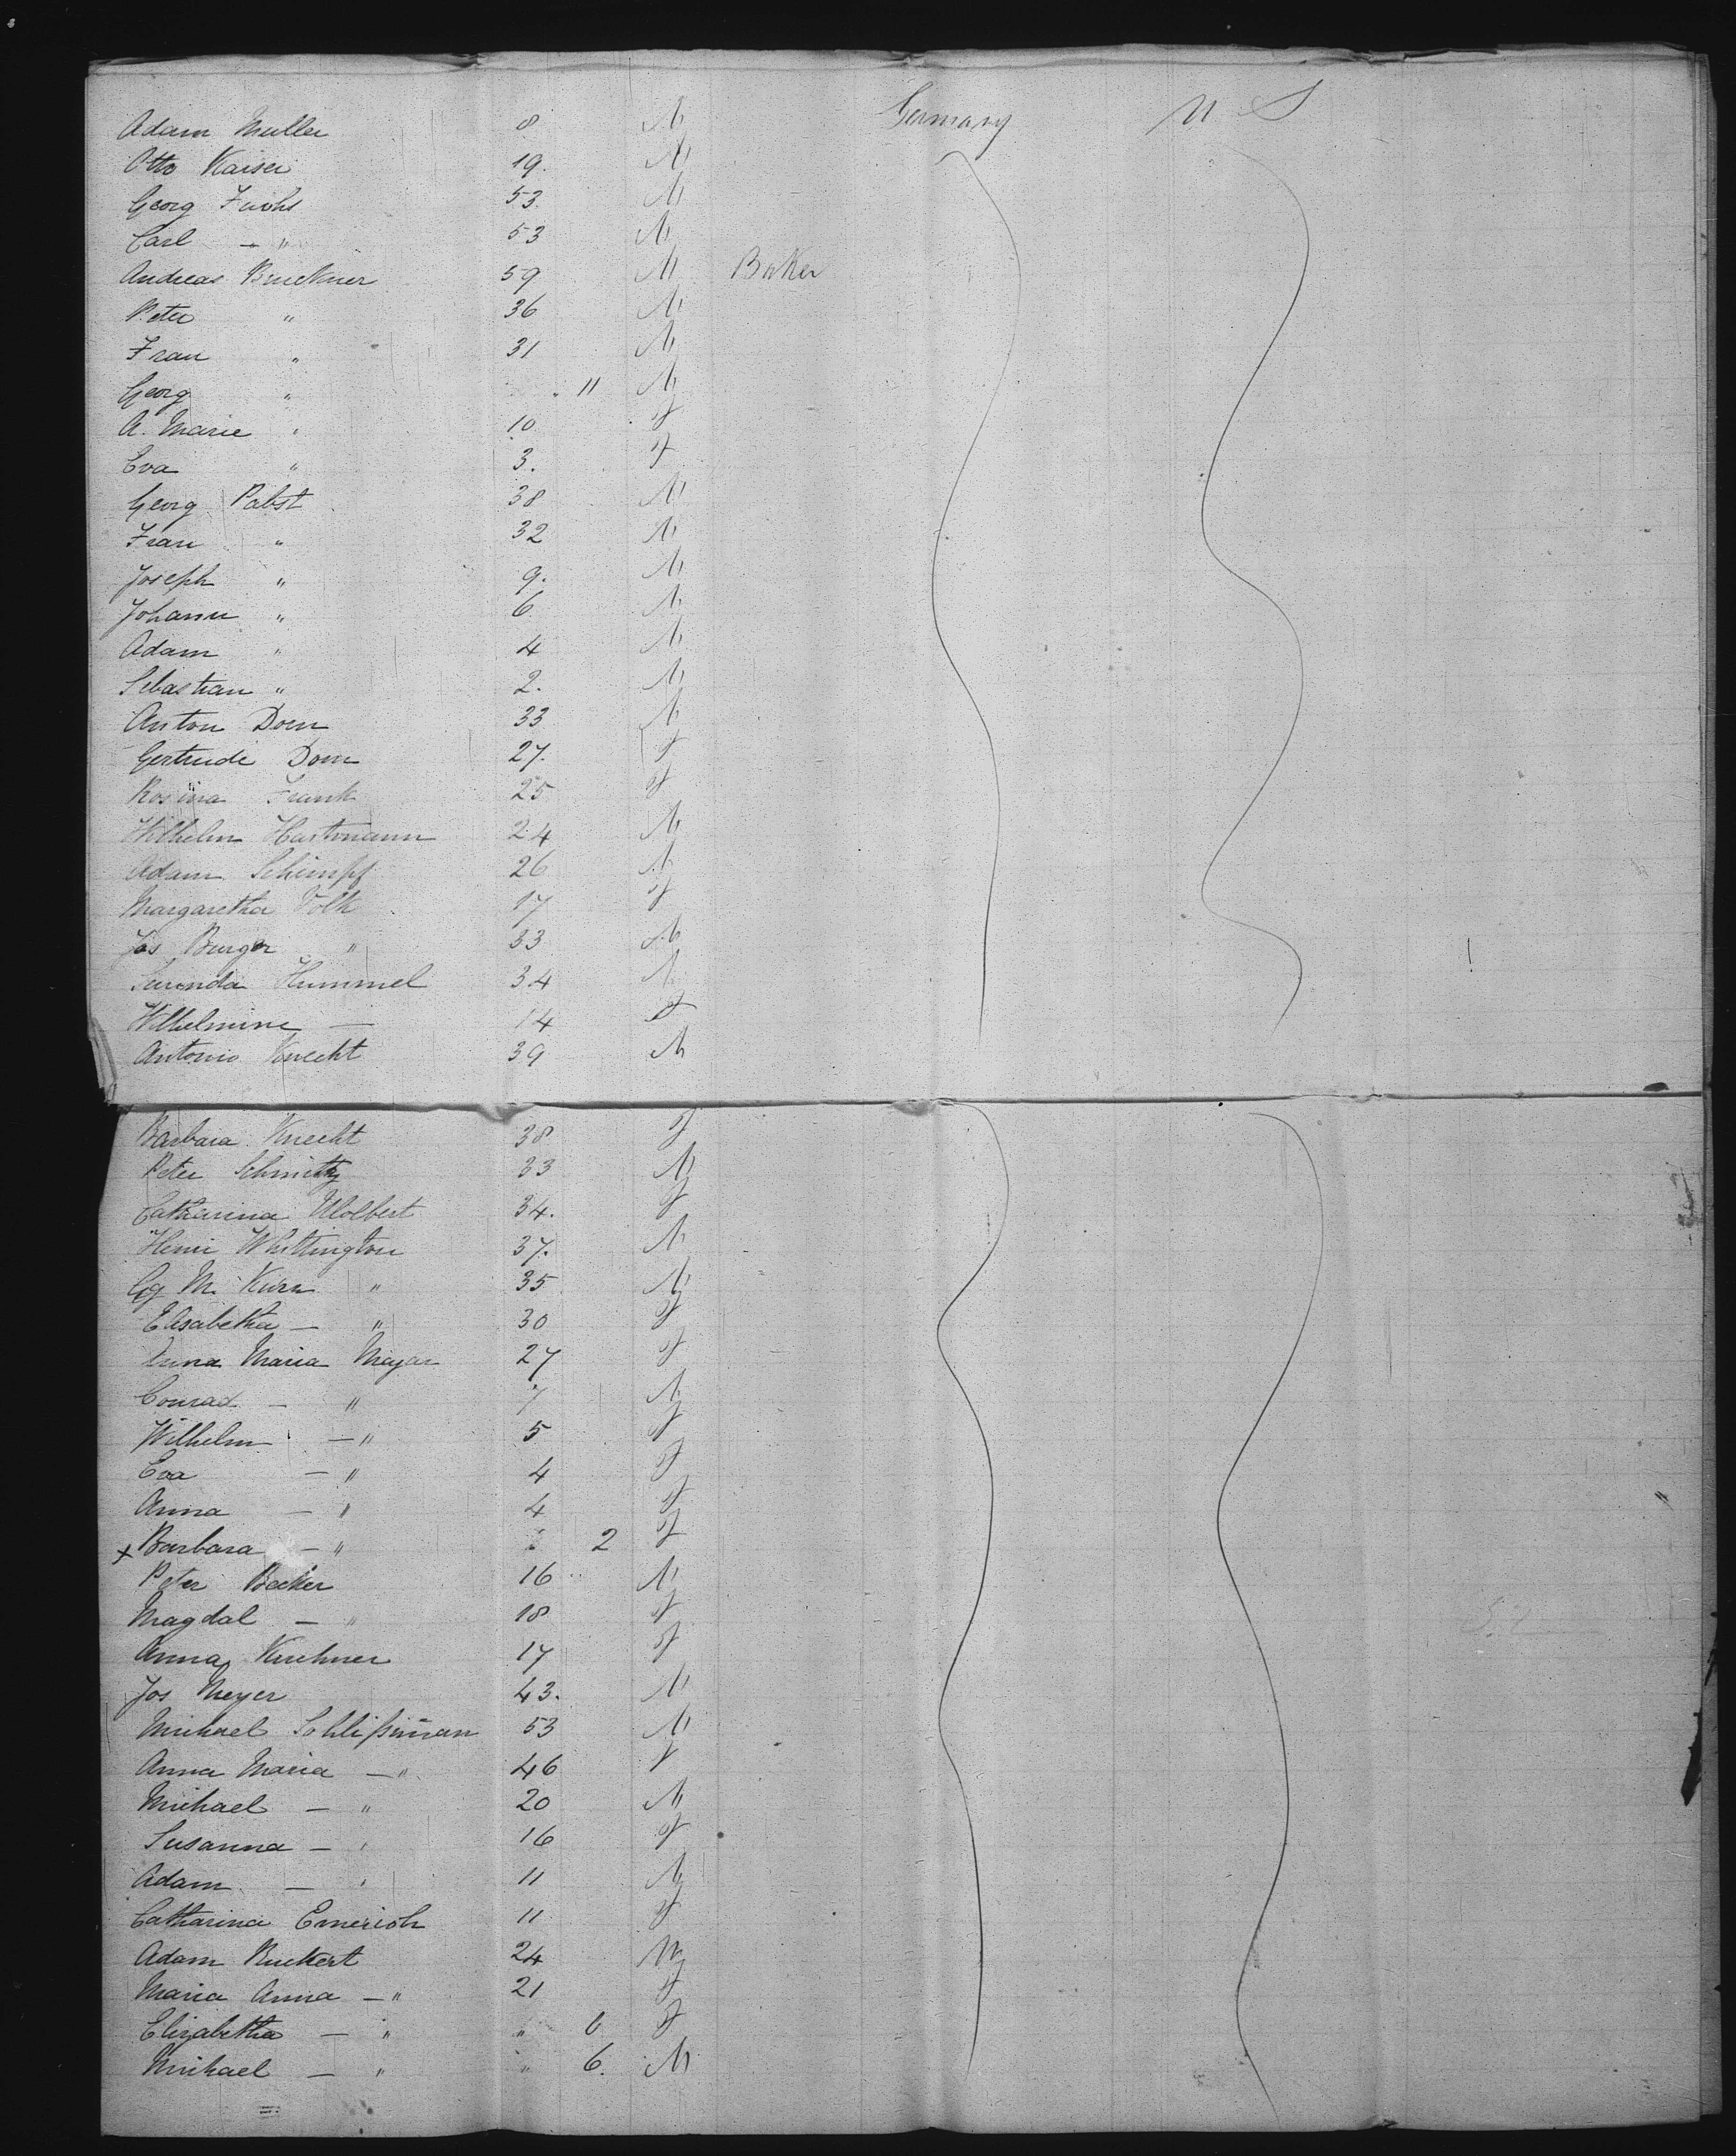 Adam Muller 8 M Germany U S
Otto Kaiser 19. M
Georg Fuchs 53 M
Carl — " 53 M
Andreas Bruckner 59 M Baker
Peter " 36 M
Frau " 31 M
Georg " 11 M
A. Marie " 10 f
Eva " 3. f
Georg Pabst 38 M
Frau " 32 M
Joseph " 9. M
Johann " 6 M
Adam " 4 M
Sebastian " 2. M
Anton Dorn 33 M
Gertrude Dorn 27. f
Rosina Frank 25 f
Wilhelm Hartmann 24 M
Adam Schimpf 26 M
Margaretha Volk 17 f
Jos Burger " 33 M
Hummel 34 M
Wilhelmine — 14 f
Antonio Knecht 39 M
Barbara Knecht 38 f
Peter Schmitz 33 M
Catharina Wolbert 34. f
Henri Whittington 37. M
Gg M. Kurn " 35 M
Elisabetha — " 30 f
Anna Maria Meyer 27 f
Conrad — " 7 M
Wilhelm — " 5 f
Eva — " 4 f
Anna — " 4 f
x Barbara — " 2 f
Peter Becker 16 M
Magdal — " 18 f
Anna Kirchner 17 f
Jos Meyer 43. M
Michael Schlißman 53 M
Anna Maria — " 46 f
Michael — " 20 M
Susanna — " 16 f
Adam — " 11 M
Catharina Emerich 11 f
Adam Ruckert 24 M
Maria Anna — " 21 f
Elizabetha — " " 6 f
Michael — " " 6. M